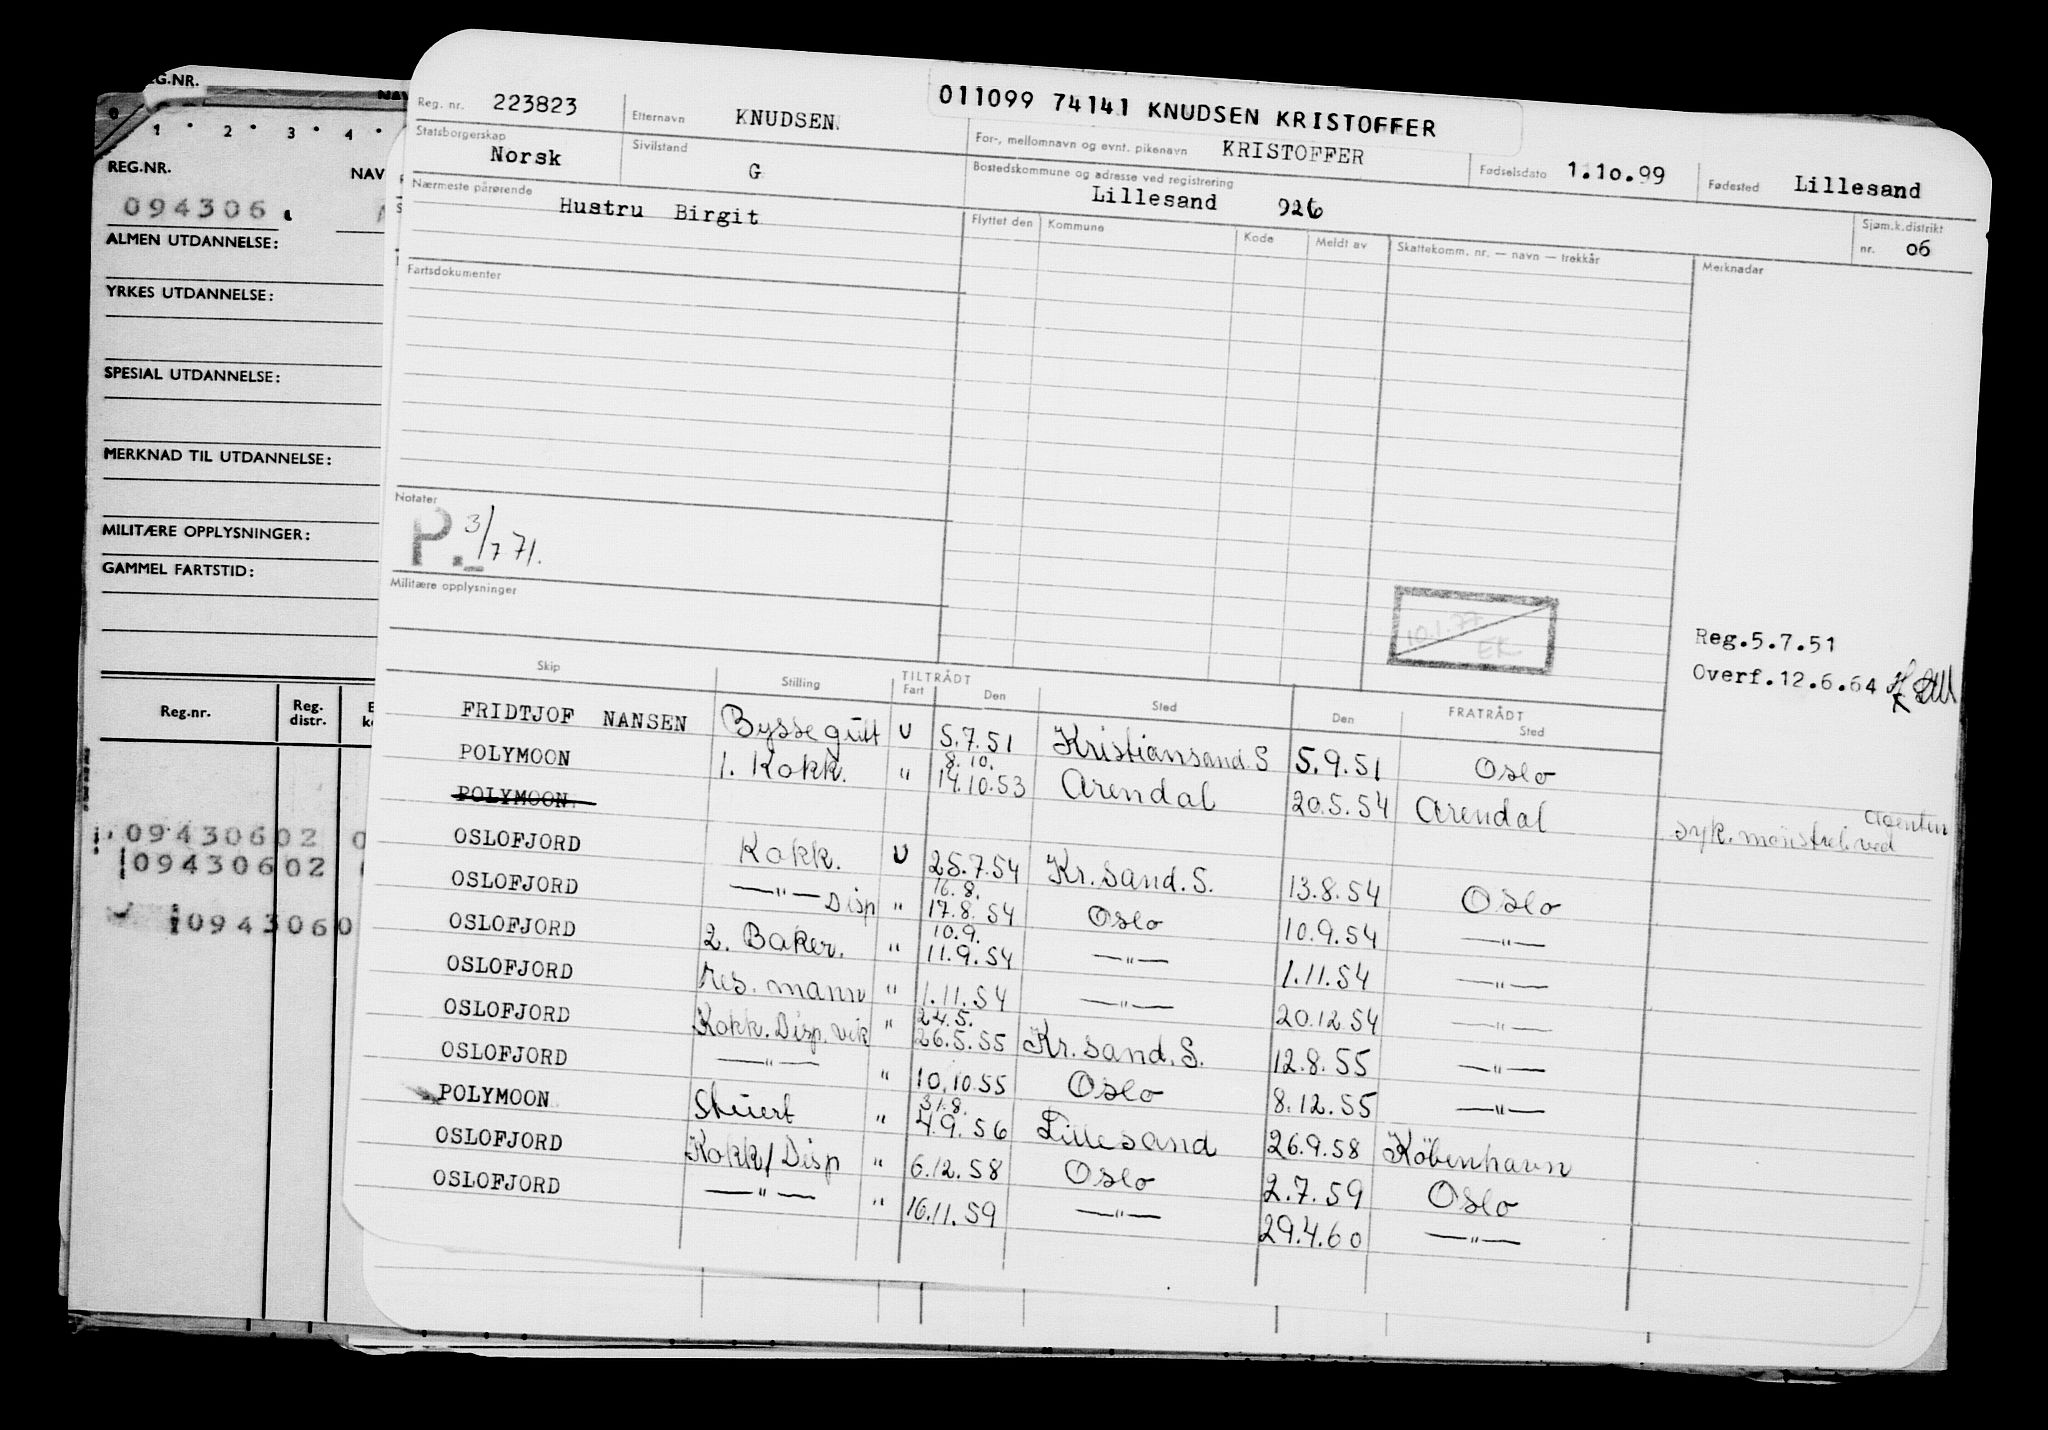 EG.NR.
NAV
0 1 2 3 4
REG.NR. NAV
094306
ALMEN UTDANNELSE:
YRKES UTDANNELSE:
SPESIAL UTDANNELSE:
MERKNAD TIL UTDANNELSE:
MILITÆRE OPPLYSNINGER:
GAMMEL FARTSTID:
Reg.nr. Reg. distr.
09430602
09430602
0943060
011099 74141 KNUDSEN KRISTOFFER
Reg. nr. 223823 Etternavn KNUDSEN For-, mellomnavn og evnt. pikenavn KRISTOFFER Fødselsdato 1.10.99 Fødested Lillesand
Statsborgerskap Norsk Sivilstand G Bostedskommune og adresse ved registrering Lillesand 926 Sjøm.k.distrikt nr. 06
Nærmeste pårørende Hustru Birgit Flyttet den Kommune Kode Meldt av Skattekomm. nr. — navn — trekkår Merknader
Fartsdokumenter
Notater
P. 3/7 71.
Militære opplysninger
10.1.77 EK
Reg.5.7.51
Overf.12.6.64
Skip Stilling TILTRÅDT Fart Den Sted Den FRATRÅDT Sted
FRIDTJOF NANSEN Byssegutt U 5.7.51 Kristiansand S 5.9.51 Oslo
POLYMOON 1. Kokk. " 8.10. 14.10.53 Arendal 20.5.54 Arendal syk. mønstret ved
POLYMOON
OSLOFJORD Kokk. U 25.7.54 Kr.sand.S. 13.8.54 Oslo
OSLOFJORD —"— Disp " 16.8. 17.8.54 Oslo 10.9.54 —"—
OSLOFJORD 2. Baker. " 10.9. 11.9.54 —"— 1.11.54 —"—
OSLOFJORD res. mann " 1.11.54 —"— 20.12.54 —"—
OSLOFJORD Kokk. Disp. vik " 24.5. 26.5.55 Kr.sand.S. 12.8.55 —"—
OSLOFJORD —"— " 10.10.55 Oslo 8.12.55 —"—
POLYMOON Stuert " 31.8. 4.9.56 Lillesand 26.9.58 København
OSLOFJORD Kokk/Disp " 6.12.58 Oslo 2.7.59 Oslo
OSLOFJORD —"— " 16.11.59 —"— 29.4.60 —"—